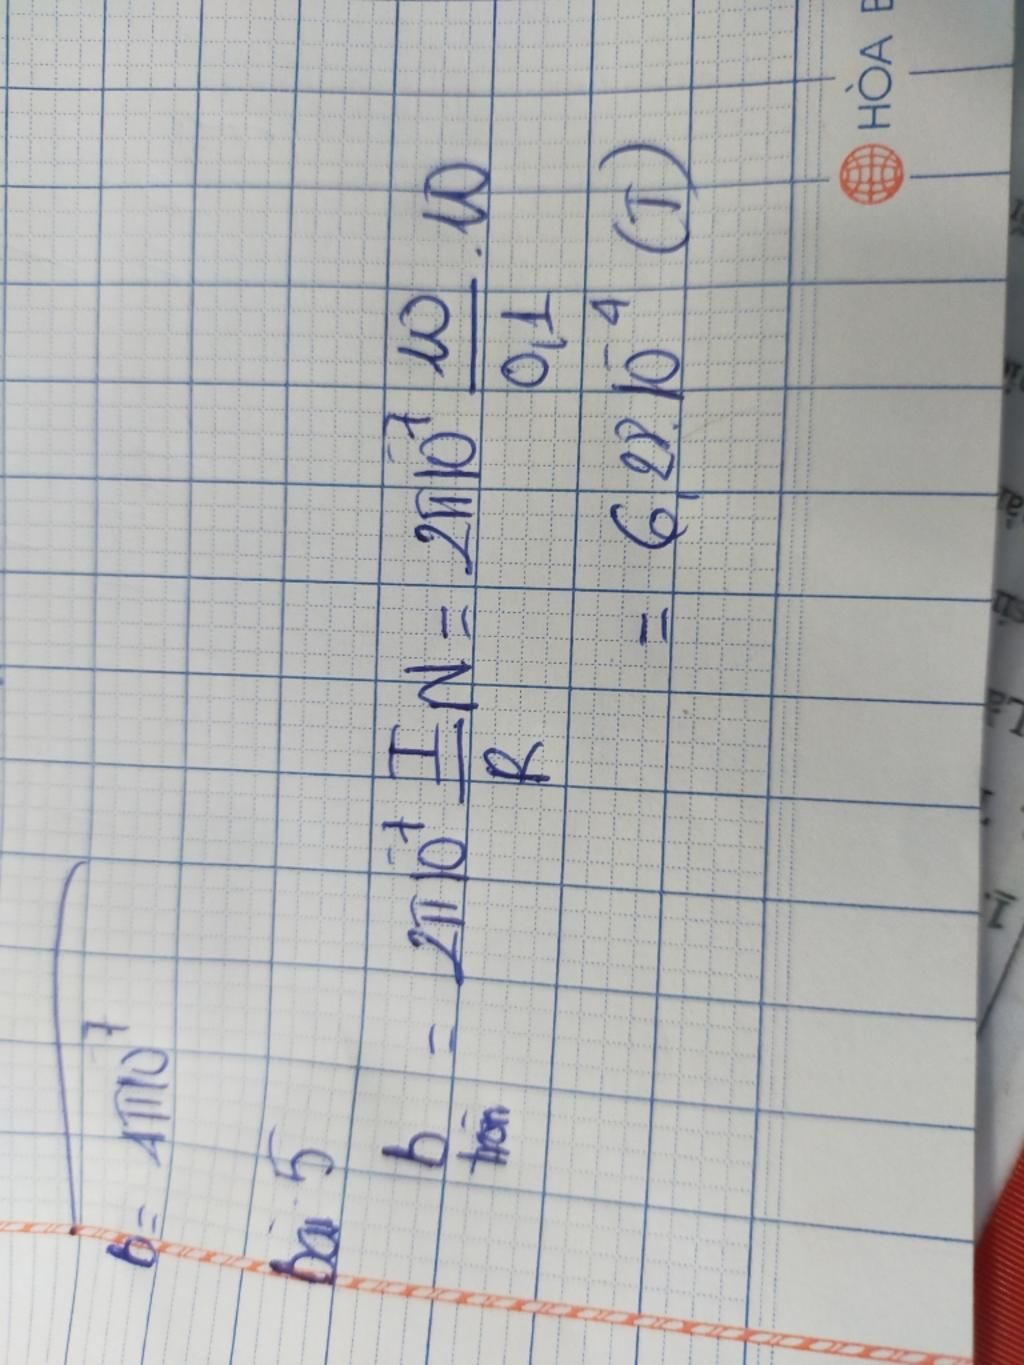 b = 4π10⁻⁷
bài 5
b tròn = 2π10⁻⁷ I/R N = 2π10⁻⁷ 10/0,1 . 10
= 6,28.10⁻⁴ (T)
HÒA B